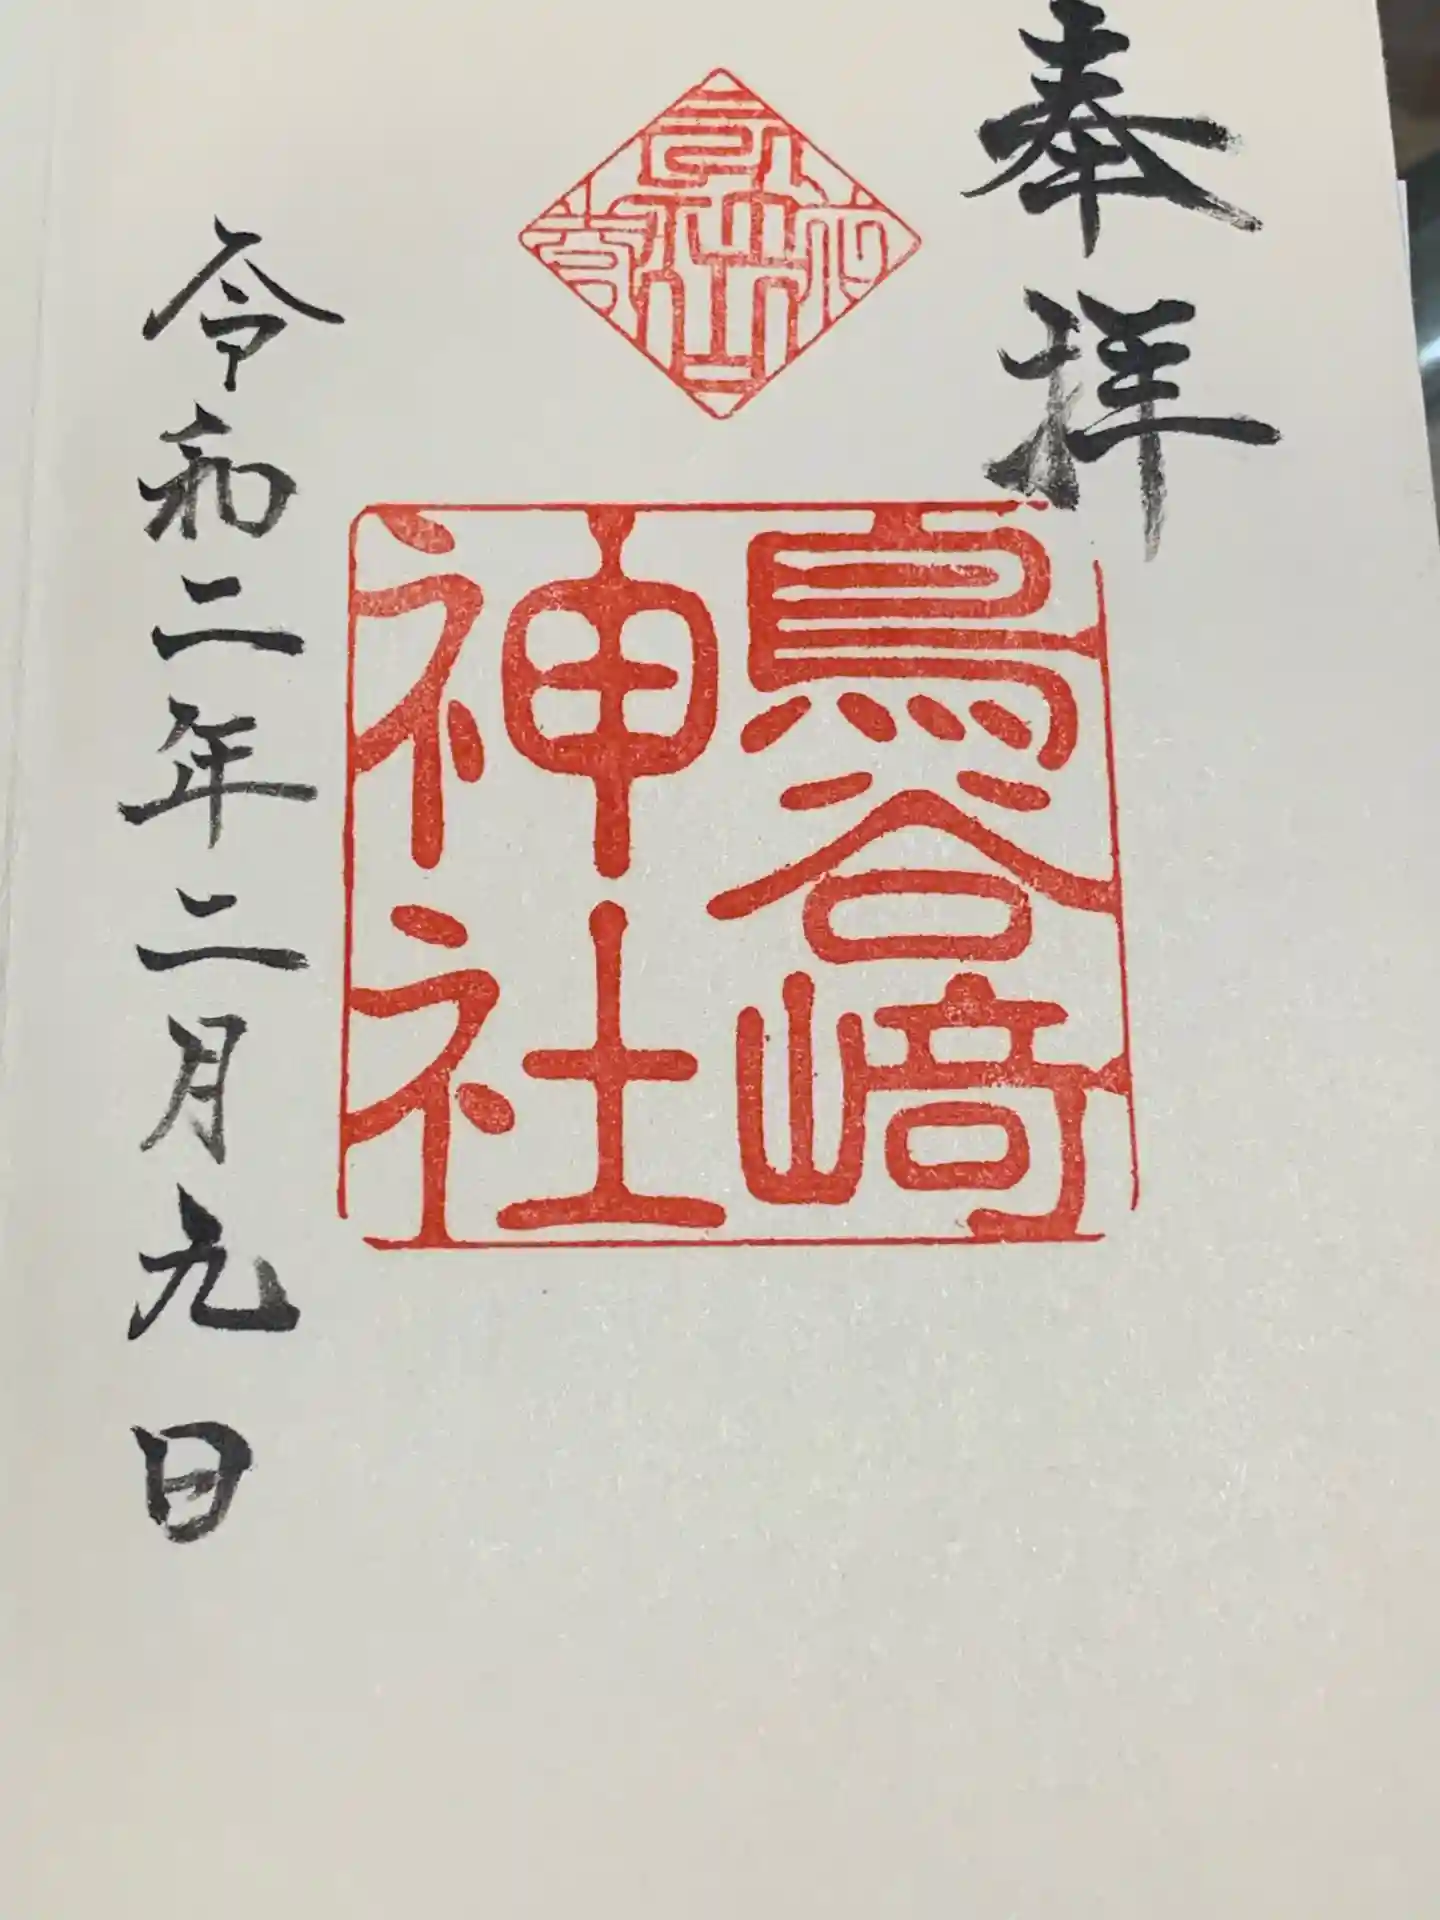 奉拝
鳥谷﨑
神社
令和二年二月九日